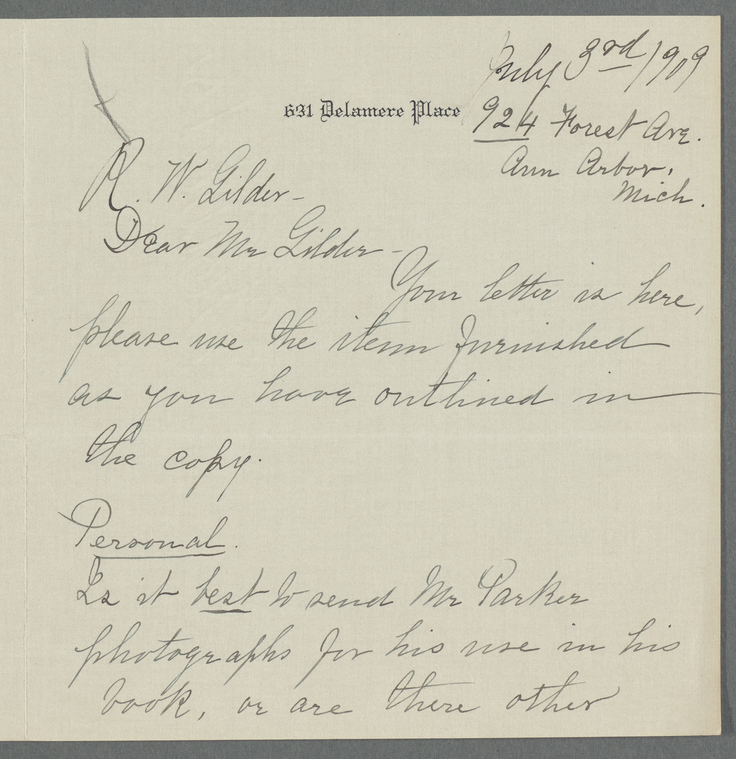 July 3rd/1909
631 Delamere Place
924 Forest Ave.
Ann Arbor,
Mich.
R. W. Gilder –
Dear Mr Gilder –
Your letter is here,
please use the item furnished
as you have outlined in
the copy.
Personal.
Is it best to send Mr Parker
photographs for his use in his
book, or are there other